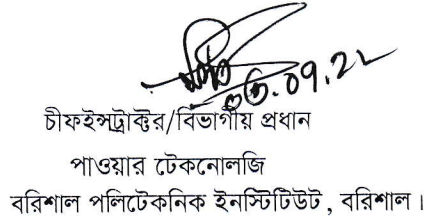 ০৬.০৭.২২
চীফইন্সট্রাক্টর/বিভাগীয় প্রধান
পাওয়ার টেকনোলজি
বরিশাল পলিটেকনিক ইনস্টিটিউট, বরিশাল।